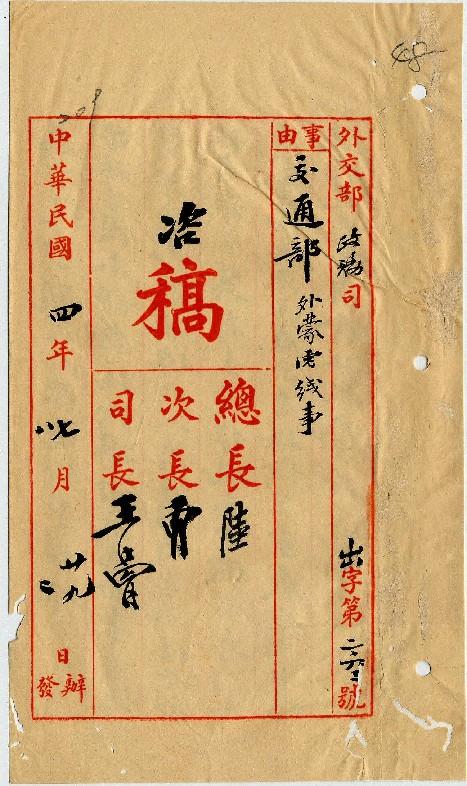 外交部 政務司 出字第 號
事由
交通部 外蒙電綫事
咨
稿
總長 陸
次長 曹
司長 王
中華民國 四年 七月 廿九 日
辦
發